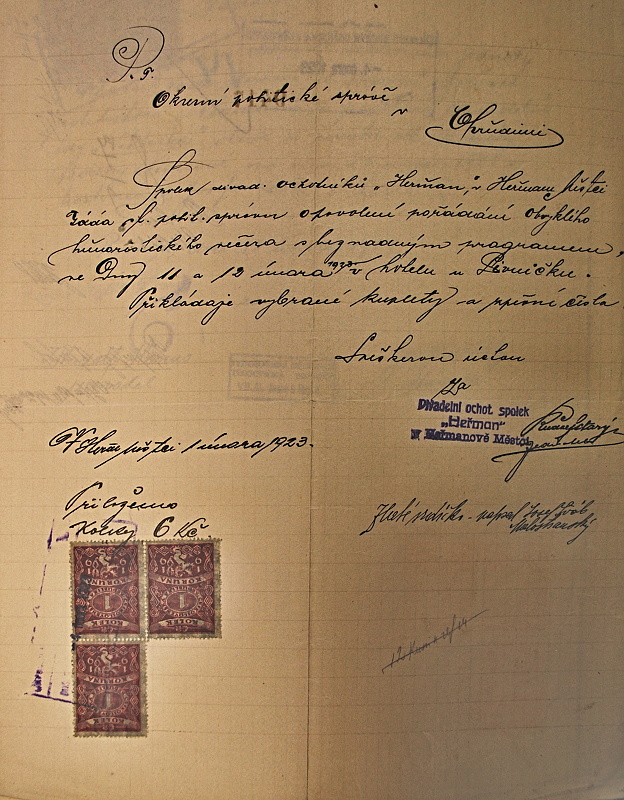 P. T.
Okresní politické správě
v Chrudimi
Spolek divad. ochotníků „Heřman" v Heřman Městci
žádá sl. polit. správu o povolení pořádání obvyklého
humoristického večera s bezvadným programem,
ve dny 11 a 12 února 1923 v hotelu u Pivničku.
Přikládaje vybrané kuplety a zpěvní čísla
S veškerou úctou
Za
Divadelní ochot. spolek
„Heřman"
v Heřmanově Městci
V Heřm Městci 1 února 1923.
Přiloženo
Kolky 6 Kč.
Zlaté srdíčko - napsal Josef
KOLEK
1
KORUNA
KOLEK
1
KORUNA
KOLEK
1
KORUNA